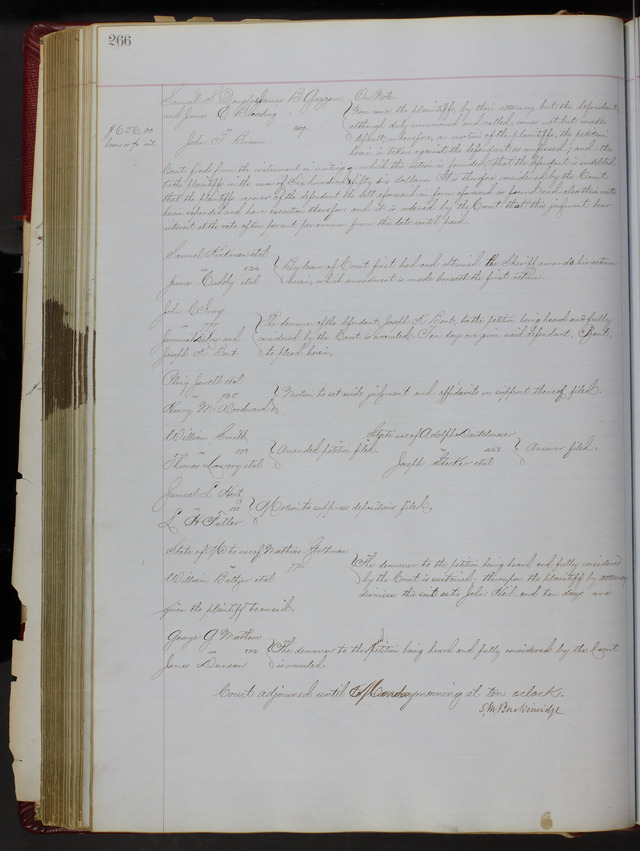 266
Samuel S. Douglas James B. Guzzam On Note
and James E. Blanding Now come the plaintiffs, by their attorney, but the defendant,
although duly summoned and called, comes not but makes
$656.00 default; wherefore, on motion of the plaintiffs, the petition
John F. herein is taken against the defendant as confessed; and the
Court finds from the instrument in writing on which the action is founded, that the defendant is indebted
to the plaintiffs in the sum of Six hundred & fifty six dollars. It is therefore considered by the Court
that the plaintiffs recover of the defendant the debt aforesaid in form aforesaid so found and also their costs
herein expended and have execution therefor and it is ordered by the Court that this judgment bear
interest at the rate of ten per cent per annum from this date until paid.
Samuel et al
vs By leave of Court first had and obtained, the Sheriff amends his return
James Cuddy et al herein, which amendment is made beneath the first return.
John C.
vs The demurrer of the defendant, Joseph F. Bont, to the petition being heard and fully
and considered by the Court is overruled. Ten days are given said defendant, Bont,
Joseph F. Bont to plead herein.
Pliny Jewell et al
vs Motion to set aside judgment and affidavits in support thereof filed.
Henry M. Woodward
William Smith State use of Adolph
vs Amended petition filed. vs Answer filed.
Thomas Lowery et al Joseph et al
Samuel L.
vs Motion to suppress depositions filed.
L. H. Fuller
State of Mo to use of Mathias
vs The demurrer to the petition being heard and fully considered
William et al by the Court is sustained; thereupon the plaintiff by attorney
dismisses this suit as to John Keil, and ten days are
given the plaintiff to amend.
George G. Mathews
vs The demurrer to the Petition being heard and fully considered by the Court
James Duncan is overruled.
Court adjourned until Monday morning at ten oclock.
S. M. Breckinridge